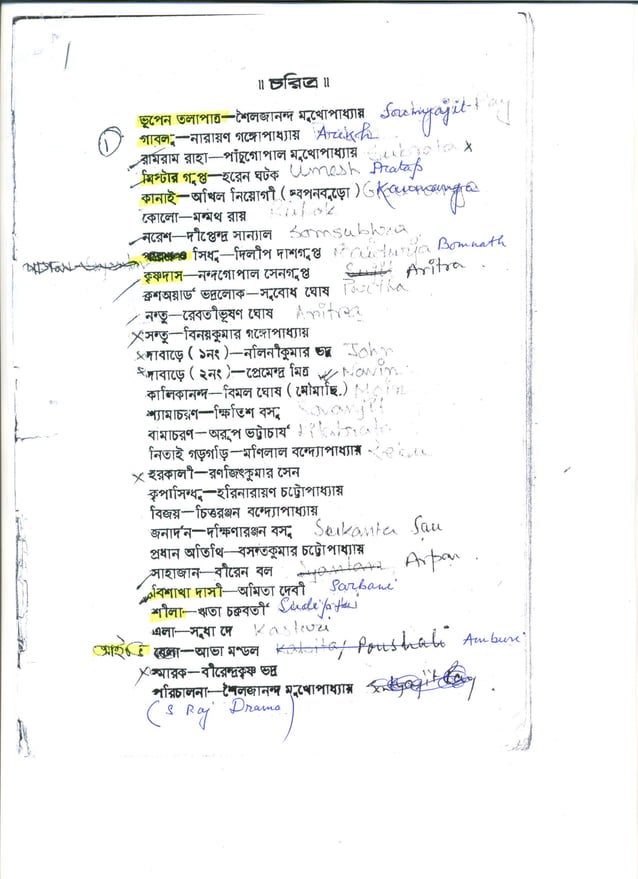 1
॥ চরিত্র ॥
ভূপেন তলাপাত্র—শৈলজানন্দ মুখোপাধ্যায়
1 গাবলু—নারায়ণ গঙ্গোপাধ্যায়
রামরাম রাহা—পাঁচুগোপাল মুখোপাধ্যায় Subrata x
মিস্টার গুপ্ত—হরেন ঘটক Umesh Pratap
কানাই—অখিল নিয়োগী (স্বপনবুড়ো)
কোলো—মন্মথ রায়
নরেশ—দীপ্তেন্দ্র সান্যাল Somsubhra
সিধু—দিলীপ দাশগুপ্ত Bomnath
কৃষ্ণদাস—নন্দগোপাল সেনগুপ্ত Aritra
ক্রশওয়ার্ড ভদ্রলোক—সুবোধ ঘোষ Partha
নন্তু—রেবতীভূষণ ঘোষ Aritra
x সন্তু—বিনয়কুমার গঙ্গোপাধ্যায়
x দাবাড়ে (১নং)—নলিনীকুমার ভদ্র John
x দাবাড়ে (২নং)—প্রেমেন্দ্র মিত্র Navin
কালিকানন্দ—বিমল ঘোষ (মৌমাছি)
শ্যামাচরণ—ক্ষিতিশ বসু
বামাচরণ—অরূপ ভট্টাচার্য
নিতাই গড়গড়ি—মণিলাল বন্দ্যোপাধ্যায়
x হরকালী—রণজিৎকুমার সেন
কৃপাসিন্ধু—হরিনারায়ণ চট্টোপাধ্যায়
বিজয়—চিত্তরঞ্জন বন্দ্যোপাধ্যায়
জনার্দন—দক্ষিণারঞ্জন বসু Srikanta Sau
প্রধান অতিথি—বসন্তকুমার চট্টোপাধ্যায়
সাহাজান—বীরেন বল Arpan.
বিশাখা দাসী—অমিতা দেবী Sarbani
শীলা—ঋতা চক্রবর্তী Sudipta
এলা—সুধা দে Kasturi
বেলা—আভা মণ্ডল Kabita/ Poushali
x স্মারক—বীরেন্দ্রকৃষ্ণ ভদ্র
পরিচালনা—শৈলজানন্দ মুখোপাধ্যায়
(S Raj Drama)